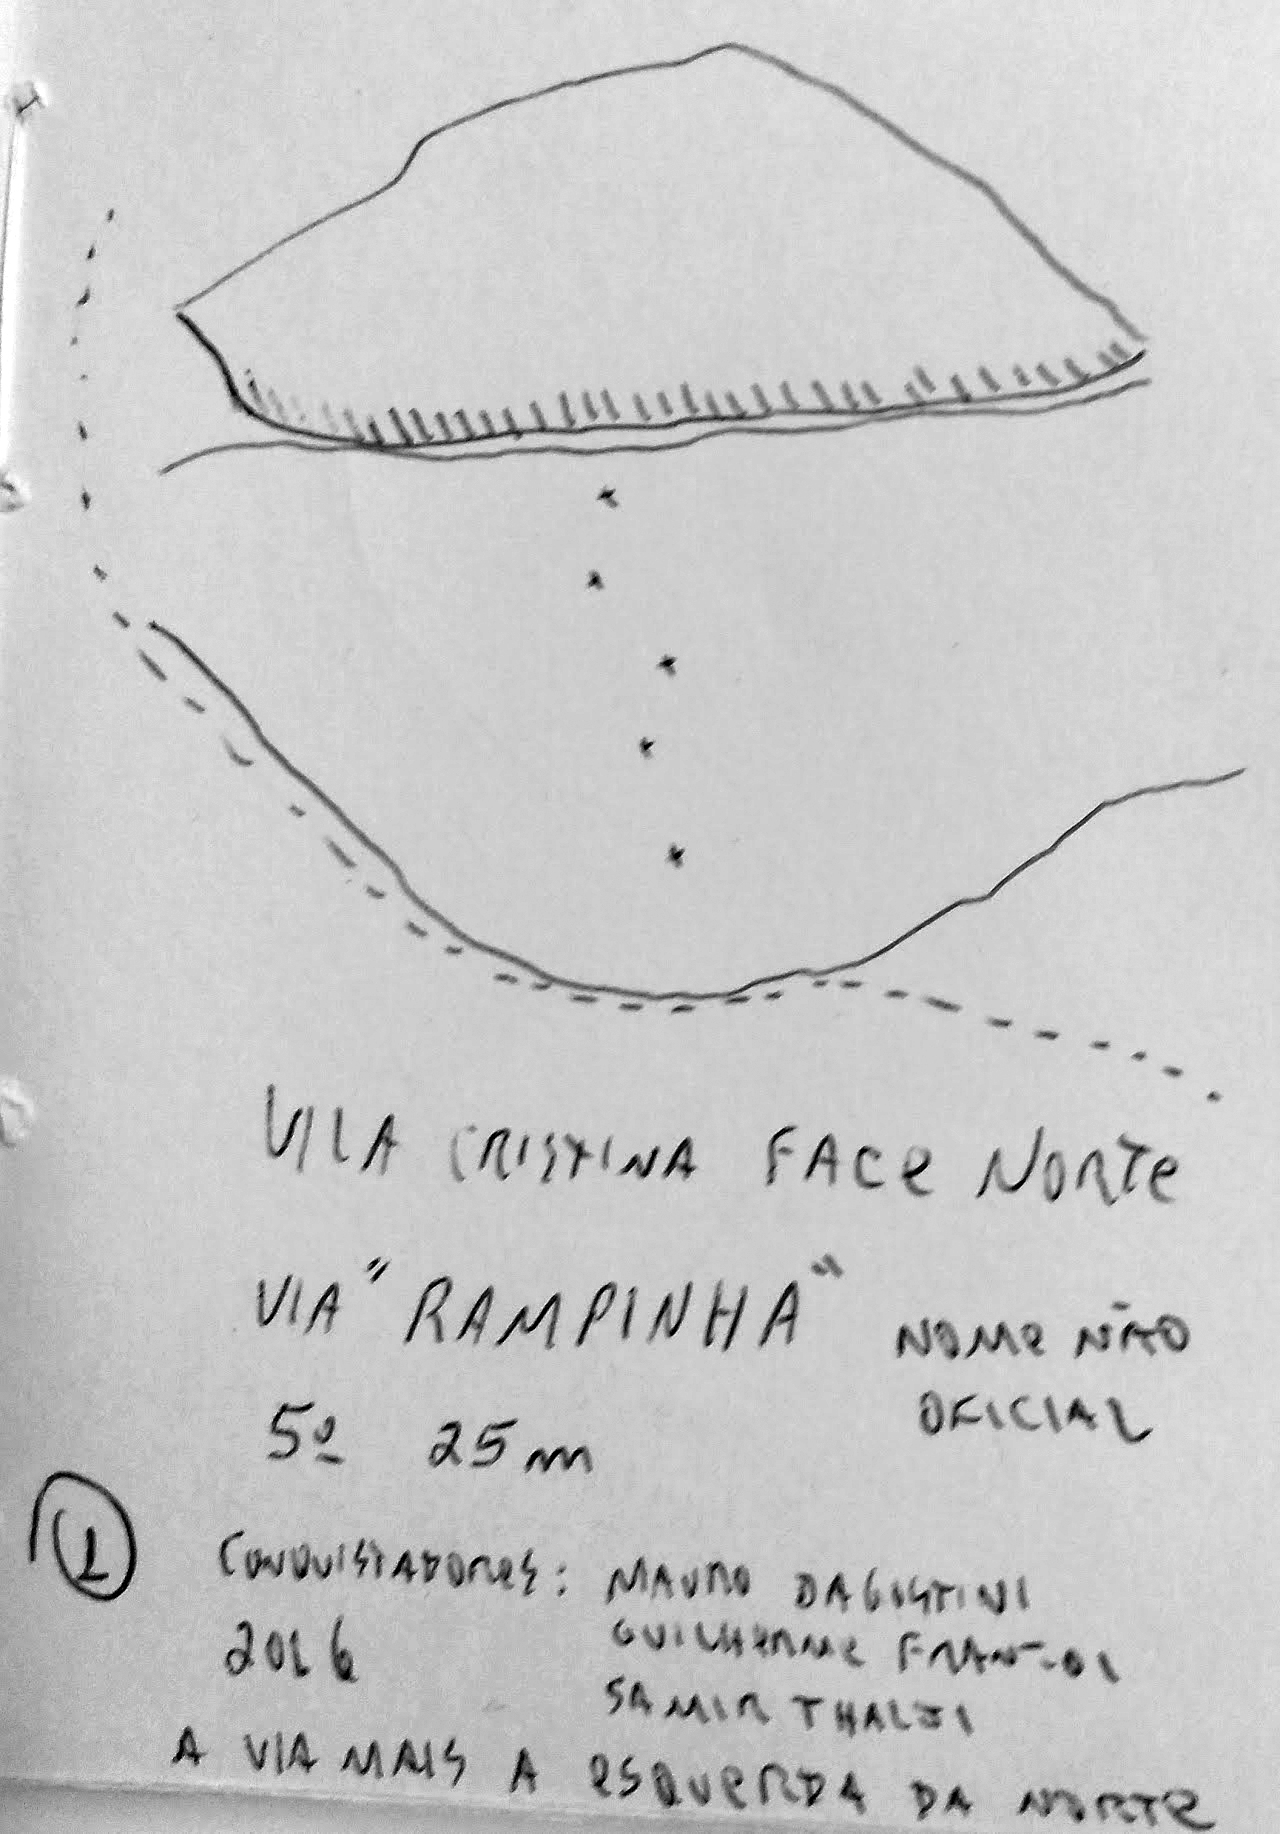 VILA CRISTINA FACE NORTE
VIA "RAMPINHA" NOME NÃO
OFICIAL
5º 25m
1
CONQUISTADORES: MAURO DAGOSTINI
2016 GUILHERME
SAMIR THALJI
A VIA MAIS A ESQUERDA DA NORTE